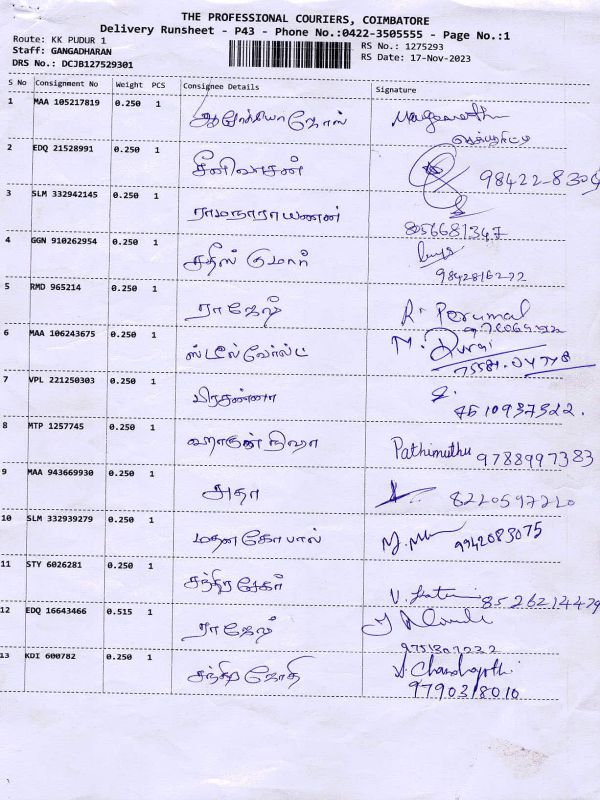 THE PROFESSIONAL COURIERS, COIMBATORE
Delivery Runsheet - P43 - Phone No.:0422-3505555 - Page No.:1
Route: KK PUDUR 1
RS No.: 1275293
Staff: GANGADHARAN
RS Date: 17-Nov-2023
DRS No.: DCJB127529301
S No Consignment No Weight PCS Consignee Details Signature
1 MAA 105217819 0.250 1 ஆரோக்கியா தோஸ்
2 EDQ 21528991 0.250 1 சீனிவாசன் 98422-8304
3 SLM 332942145 0.250 1 ராமநாராயணன்
8056681347
4 GGN 910262954 0.250 1 சதீஸ் குமார்
9842816272
5 RMD 965214 0.250 1 ராஜேஷ் R. Perumal
6 MAA 106243675 0.250 1 ஸ்டீல்வோர்ல்ட் M. Durai
75581.04778
7 VPL 221250303 0.250 1 பிரசன்னா
7510937322.
8 MTP 1257745 0.250 1 ஹாருன் நிஷா Pathimuthu 9788997383
9 MAA 943669930 0.250 1 அதா 8220597220
10 SLM 332939279 0.250 1 மதன கோபால் 9942083075
11 STY 6026281 0.250 1 சந்திரசேகர்
8526214479
12 EDQ 16643466 0.515 1 ராஜேஷ்
9751307232
13 KDI 600782 0.250 1 சந்திர ஜோதி
9790318010